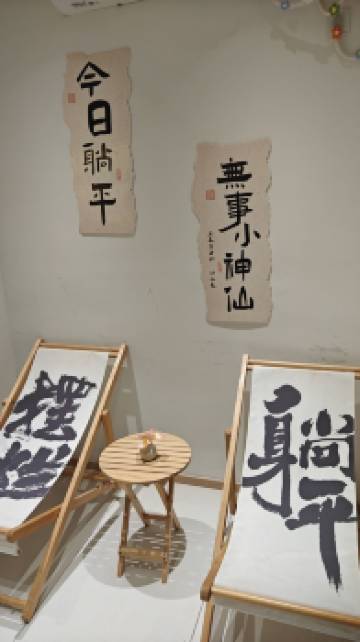 今日躺平
無事小神仙
摆烂
躺平